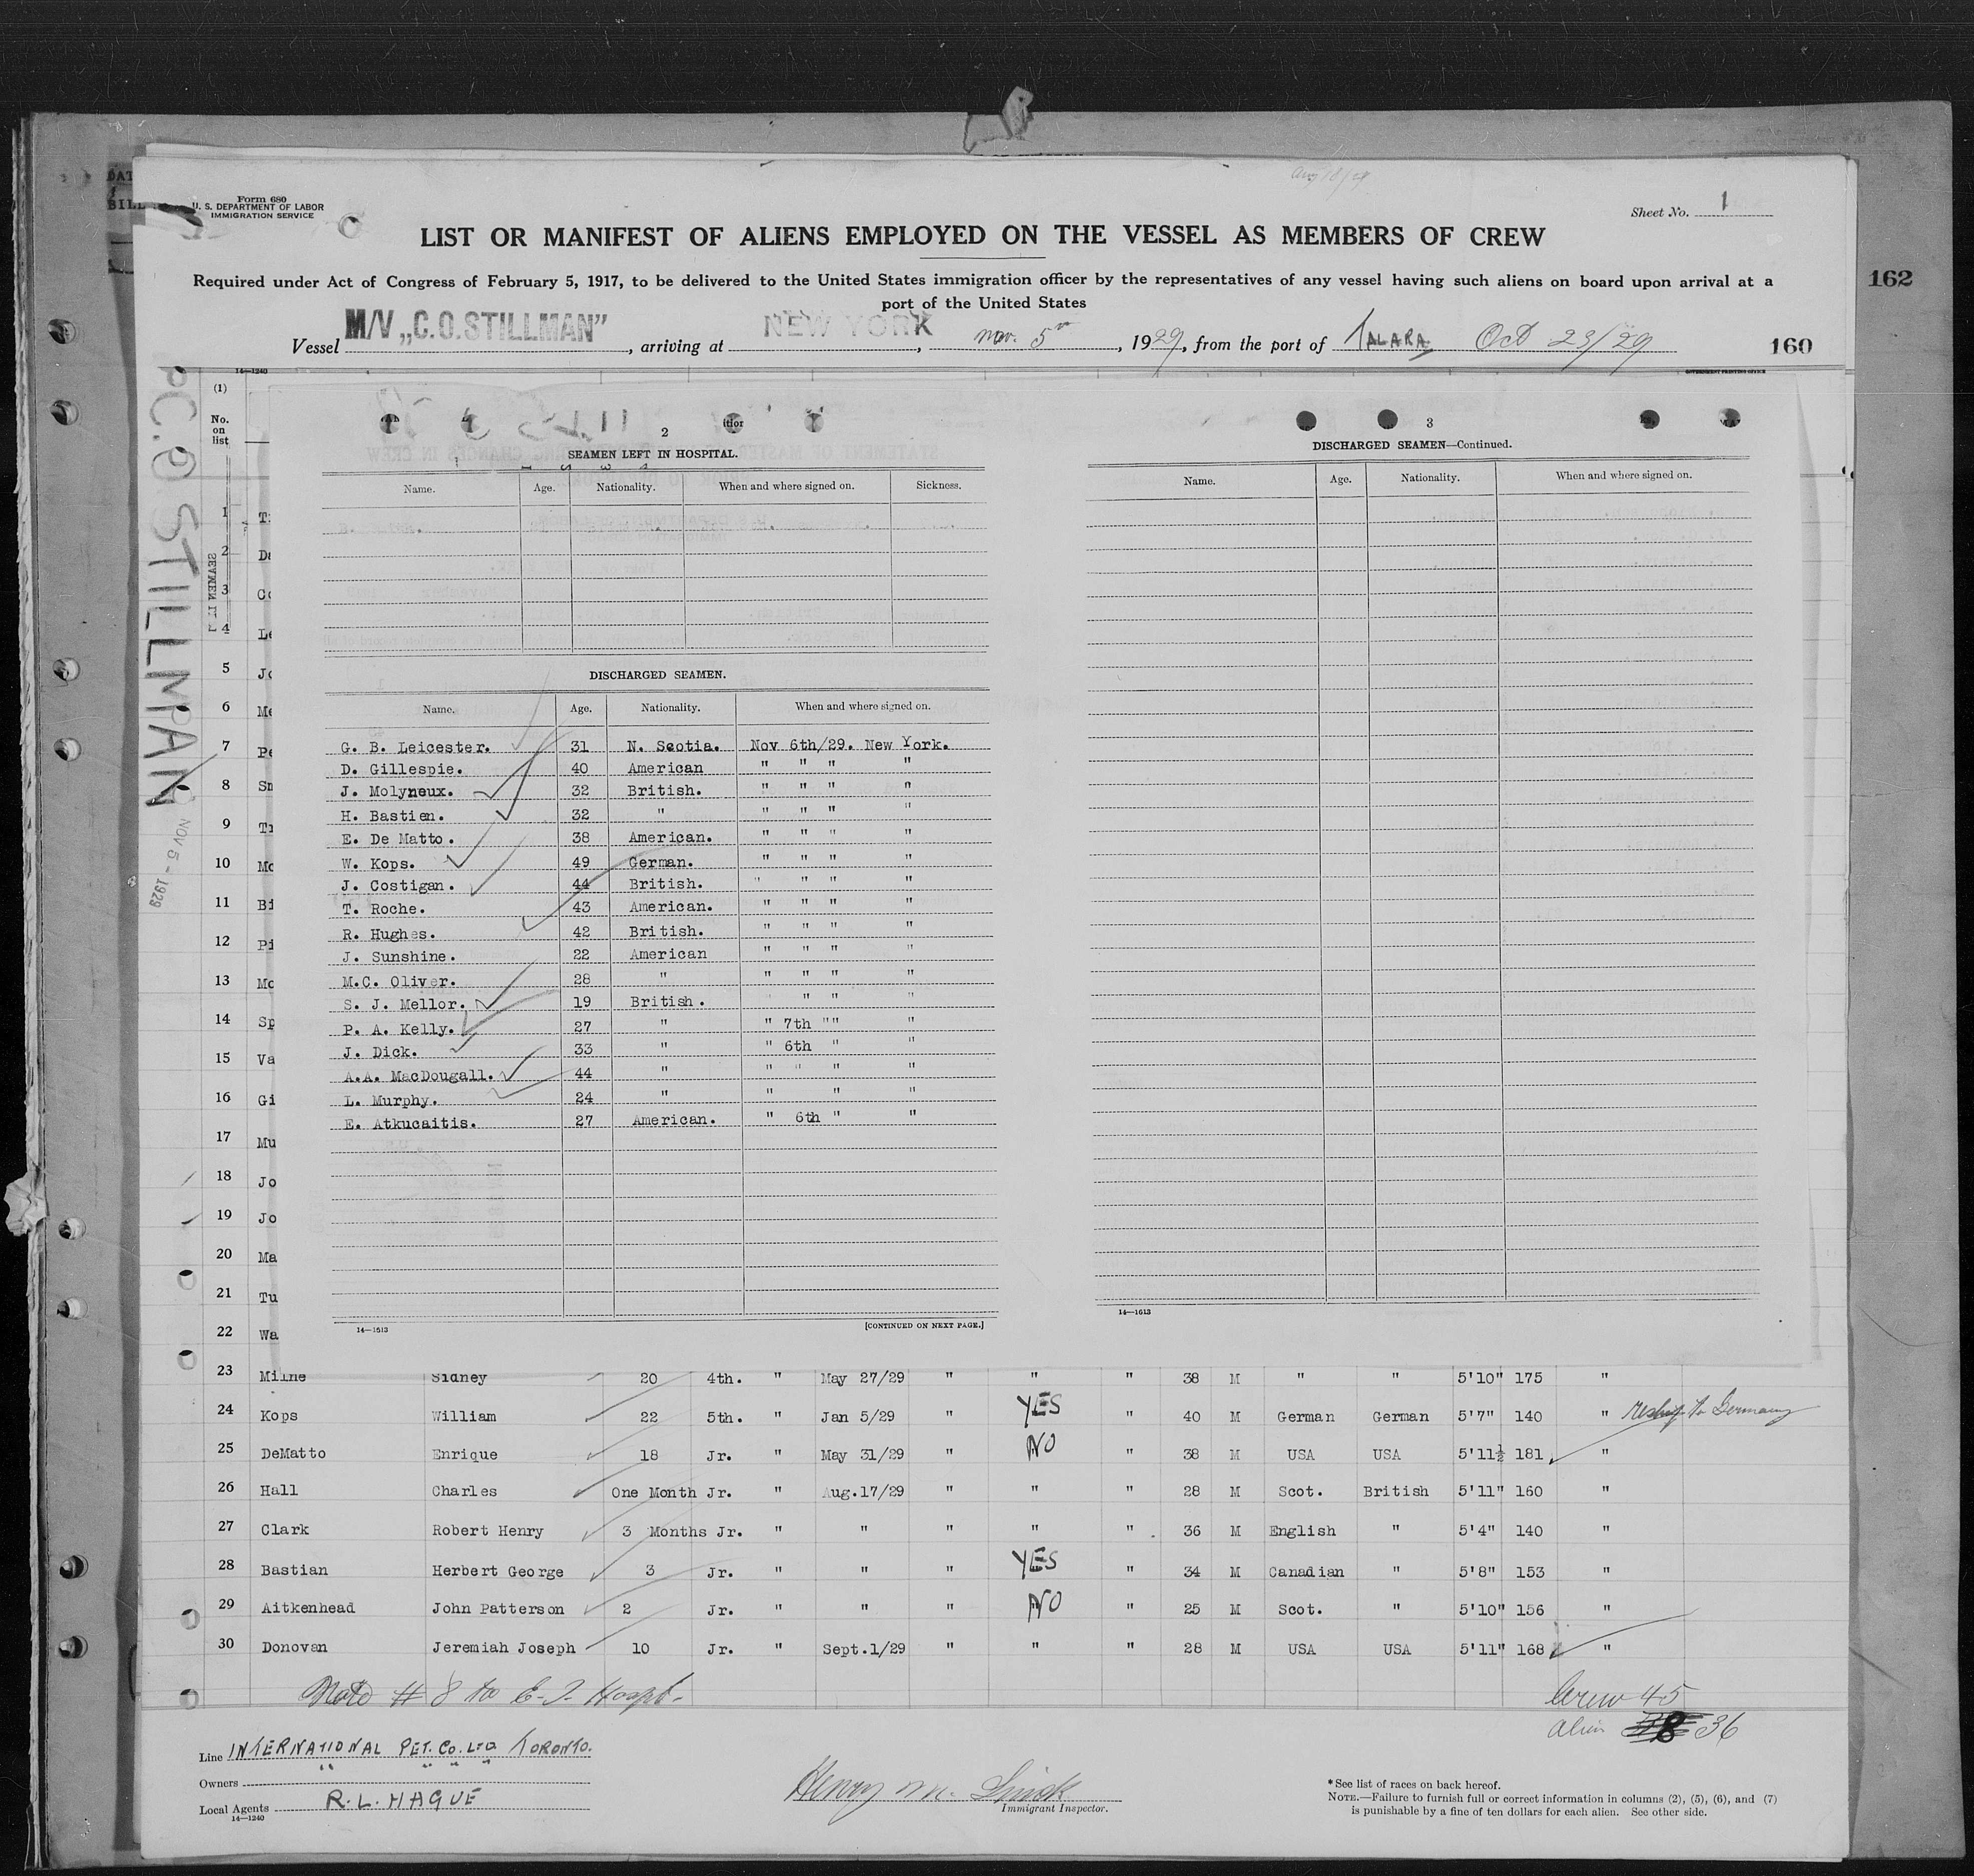 Form 680
U. S. DEPARTMENT OF LABOR
IMMIGRATION SERVICE
Sheet No. 1
LIST OR MANIFEST OF ALIENS EMPLOYED ON THE VESSEL AS MEMBERS OF CREW
Required under Act of Congress of February 5, 1917, to be delivered to the United States immigration officer by the representatives of any vessel having such aliens on board upon arrival at a
port of the United States
162
Vessel M/V „C.O.STILLMAN”, arriving at NEW YORK, Nov. 5th, 1929, from the port of TALARA Oct 23/29
160
14—1240
GOVERNMENT PRINTING OFFICE
C.O STILLMAN
NOV 5 - 1929
(1)
No. on list
2
SEAMEN LEFT IN HOSPITAL.
Name. Age. Nationality. When and where signed on. Sickness.
DISCHARGED SEAMEN.
Name. Age. Nationality. When and where signed on.
G. B. Leicester. 31 N. Scotia. Nov 6th/29. New York.
D. Gillespie. 40 American " " " "
J. Molyneux. 32 British. " " " "
H. Bastien. 32 " " " " "
E. De Matto. 38 American. " " " "
W. Kops. 49 German. " " " "
J. Costigan. 44 British. " " " "
T. Roche. 43 American. " " " "
R. Hughes. 42 British. " " " "
J. Sunshine. 22 American " " " "
M.C. Oliver. 28 " " " " "
S. J. Mellor. 19 British. " " "
P. A. Kelly. 27 " " 7th "" "
J. Dick. 33 " " 6th " "
A.A. MacDougall. 44 " " " " "
L. Murphy. 24 " " " "
E. Atkucaitis. 27 American. " 6th " "
14—1613
[CONTINUED ON NEXT PAGE.]
3
DISCHARGED SEAMEN—Continued.
Name. Age. Nationality. When and where signed on.
14—1613
1 T
2 Da
3 Co
4 Le
5 Jo
6 Mc
7 Pe
8 Sm
9 Tr
10 Mc
11 Bi
12 Pi
13 Mc
14 Sp
15 Va
16 Gi
17 Mu
18 Jo
19 Jo
20 Ma
21 Tu
22 Wa
23 Milne Sidney 20 4th. " May 27/29 " " " 38 M " " 5'10" 175 "
24 Kops William 22 5th. " Jan 5/29 " YES " 40 M German German 5'7" 140 " Reship to Germany
25 DeMatto Enrique 18 Jr. " May 31/29 " NO " 38 M USA USA 5'11½ 181 "
26 Hall Charles One Month Jr. " Aug.17/29 " " " 28 M Scot. British 5'11" 160 "
27 Clark Robert Henry 3 Months Jr. " " " " " 36 M English " 5'4" 140 "
28 Bastian Herbert George 3 Jr. " " " YES " 34 M Canadian " 5'8" 153 "
29 Aitkenhead John Patterson 2 Jr. " " " NO " 25 M Scot. " 5'10" 156 "
30 Donovan Jeremiah Joseph 10 Jr. " Sept.1/29 " " " 28 M USA USA 5'11" 168 "
Note # 8 to E. I. Hospt.
Crew 45
alien 36
Line INTERNATIONAL PET. Co. LTD. TORONTO.
Owners " " "
Local Agents R. L. HAGUE
14—1240
Henry M.
Immigrant Inspector.
* See list of races on back hereof.
NOTE.—Failure to furnish full or correct information in columns (2), (5), (6), and (7)
is punishable by a fine of ten dollars for each alien. See other side.